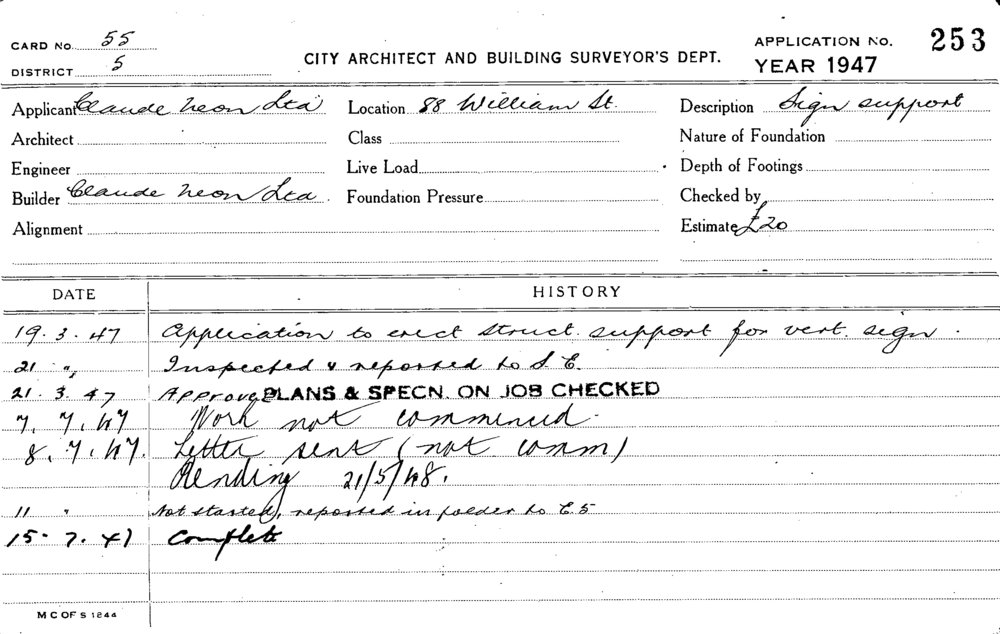 CARD No. 55
DISTRICT 5
CITY ARCHITECT AND BUILDING SURVEYOR'S DEPT.
APPLICATION No. 253
YEAR 1947
Applicant Claude Neon Ltd Location 88 William St. Description Sign support
Architect Class Nature of Foundation
Engineer Live Load Depth of Footings
Builder Claude Neon Ltd. Foundation Pressure Checked by
Alignment Estimate £20
DATE HISTORY
19.3.47 Application to erect struct. support for vert. sign.
21 " Inspected & reported to S.E.
21.3.47 Approved PLANS & SPECN. ON JOB CHECKED
7.7.47 Work not commenced.
8.7.47. Letter sent (not comm)
Pending 21/5/48.
11 " Not started, reported in folder to E5
15.7.47 Complete
M C OF S 1244